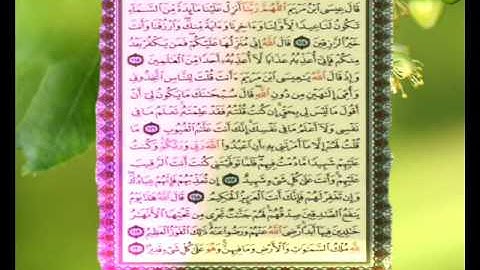 قَالَ عِيسَى ٱبْنُ مَرْيَمَ ٱللَّهُمَّ رَبَّنَآ أَنزِلْ عَلَيْنَا مَآئِدَةً مِّنَ ٱلسَّمَآءِ
تَكُونُ لَنَا عِيدًا لِّأَوَّلِنَا وَءَاخِرِنَا وَءَايَةً مِّنكَ وَٱرْزُقْنَا وَأَنتَ
خَيْرُ ٱلرَّٰزِقِينَ ١١٤ قَالَ ٱللَّهُ إِنِّى مُنَزِّلُهَا عَلَيْكُمْ فَمَن يَكْفُرْ بَعْدُ
مِنكُمْ فَإِنِّىٓ أُعَذِّبُهُۥ عَذَابًا لَّآ أُعَذِّبُهُۥٓ أَحَدًا مِّنَ ٱلْعَٰلَمِينَ ١١٥
وَإِذْ قَالَ ٱللَّهُ يَٰعِيسَى ٱبْنَ مَرْيَمَ ءَأَنتَ قُلْتَ لِلنَّاسِ ٱتَّخِذُونِى
وَأُمِّىَ إِلَٰهَيْنِ مِن دُونِ ٱللَّهِ قَالَ سُبْحَٰنَكَ مَا يَكُونُ لِىٓ أَنْ
أَقُولَ مَا لَيْسَ لِى بِحَقٍّ إِن كُنتُ قُلْتُهُۥ فَقَدْ عَلِمْتَهُۥ تَعْلَمُ مَا فِى
نَفْسِى وَلَآ أَعْلَمُ مَا فِى نَفْسِكَ إِنَّكَ أَنتَ عَلَّٰمُ ٱلْغُيُوبِ ١١٦
مَا قُلْتُ لَهُمْ إِلَّا مَآ أَمَرْتَنِى بِهِۦٓ أَنِ ٱعْبُدُوا۟ ٱللَّهَ رَبِّى وَرَبَّكُمْ وَكُنتُ
عَلَيْهِمْ شَهِيدًا مَّا دُمْتُ فِيهِمْ فَلَمَّا تَوَفَّيْتَنِى كُنتَ أَنتَ ٱلرَّقِيبَ
عَلَيْهِمْ وَأَنتَ عَلَىٰ كُلِّ شَىْءٍ شَهِيدٌ ١١٧ إِن تُعَذِّبْهُمْ فَإِنَّهُمْ عِبَادُكَ
وَإِن تَغْفِرْ لَهُمْ فَإِنَّكَ أَنتَ ٱلْعَزِيزُ ٱلْحَكِيمُ ١١٨ قَالَ ٱللَّهُ هَٰذَا يَوْمُ
يَنفَعُ ٱلصَّٰدِقِينَ صِدْقُهُمْ لَهُمْ جَنَّٰتٌ تَجْرِى مِن تَحْتِهَا ٱلْأَنْهَٰرُ
خَٰلِدِينَ فِيهَآ أَبَدًا رَّضِىَ ٱللَّهُ عَنْهُمْ وَرَضُوا۟ عَنْهُ ذَٰلِكَ ٱلْفَوْزُ ٱلْعَظِيمُ ١١٩
لِلَّهِ مُلْكُ ٱلسَّمَٰوَٰتِ وَٱلْأَرْضِ وَمَا فِيهِنَّ وَهُوَ عَلَىٰ كُلِّ شَىْءٍ قَدِيرٌۢ ١٢٠